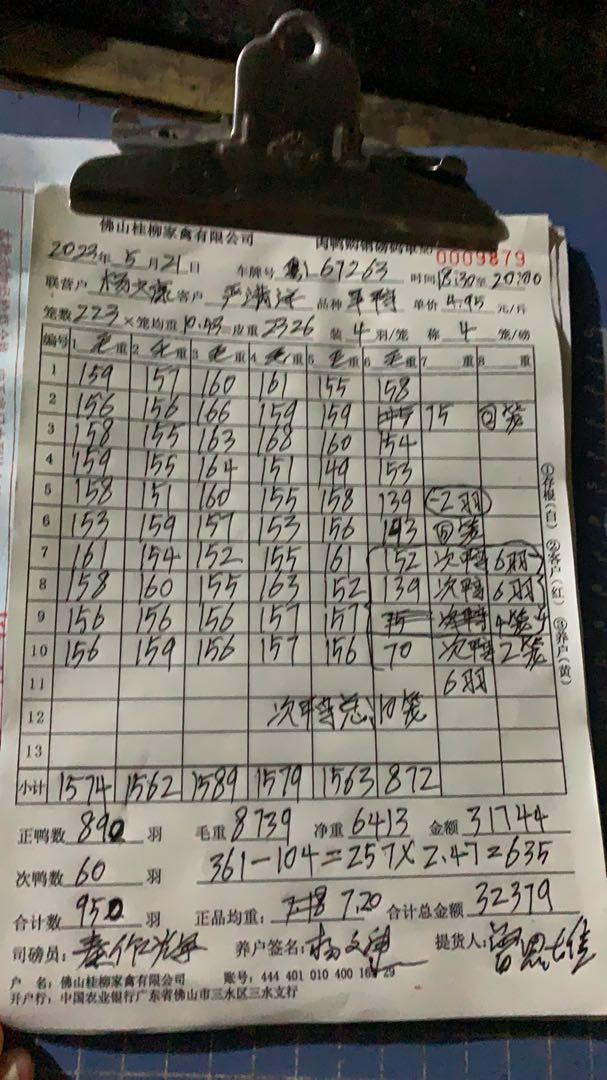 佛山桂柳家禽有限公司 肉鸭购销磅码单 0009879
2023年5月21日 车牌号 67263 时间18:30至20:00
联营户 杨 客户 严满 品种 单价4.95元/斤
笼数223×笼均重10.43皮重2326 装4羽/笼 称4笼/磅
编号 1毛重 2毛重 3毛重 4毛重 5毛重 6毛重 7重 8重
1 159 157 160 161 155 158
2 156 156 166 159 159 75 回笼
3 158 155 163 168 160 154
4 159 155 164 151 149 153
5 158 151 160 155 158 139 2羽
6 153 159 157 153 156 143 回笼
7 161 154 152 155 161 152 次鸭 6羽
8 158 160 155 163 152 139 次鸭 6羽
9 156 156 156 157 157 75 次鸭 4笼
10 156 159 156 157 156 70 次鸭2笼
11 6羽
12 次鸭总:10笼
13
小计 1574 1562 1589 1579 1563 872
正鸭数 890 羽 毛重 8739 净重 6413 金额 31744
次鸭数 60 羽 361-104=257×2.47=635
合计数 950 羽 正品均重: 7.20 合计总金额 32379
司磅员: 养户签名: 杨文 提货人: 曾思佳
户 名: 佛山桂柳家禽有限公司 账号: 444 401 010 400 29
开户行: 中国农业银行广东省佛山市三水区三水支行
①存根(白) ②客户(红) ③养户(黄)